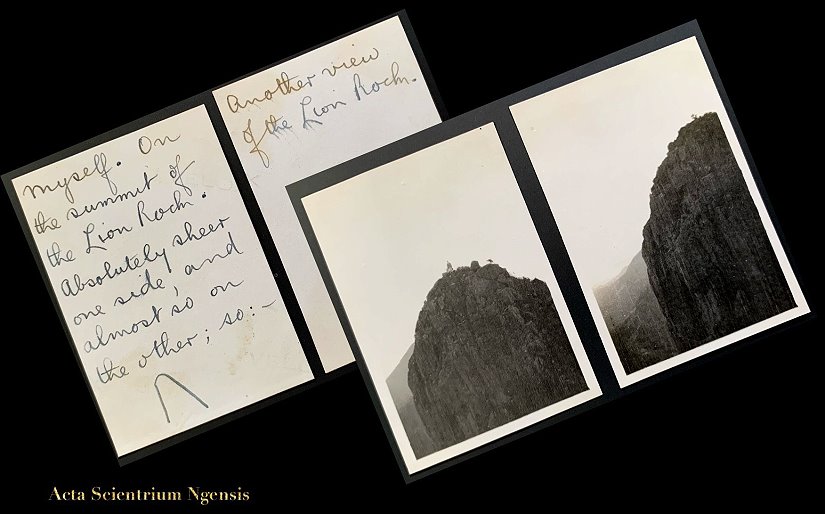 myself. On
the summit of
the Lion Rock.
Absolutely sheer
one side, and
almost so on
the other; so:-
Another view
of the Lion Rock.
Acta Scientrium Ngensis